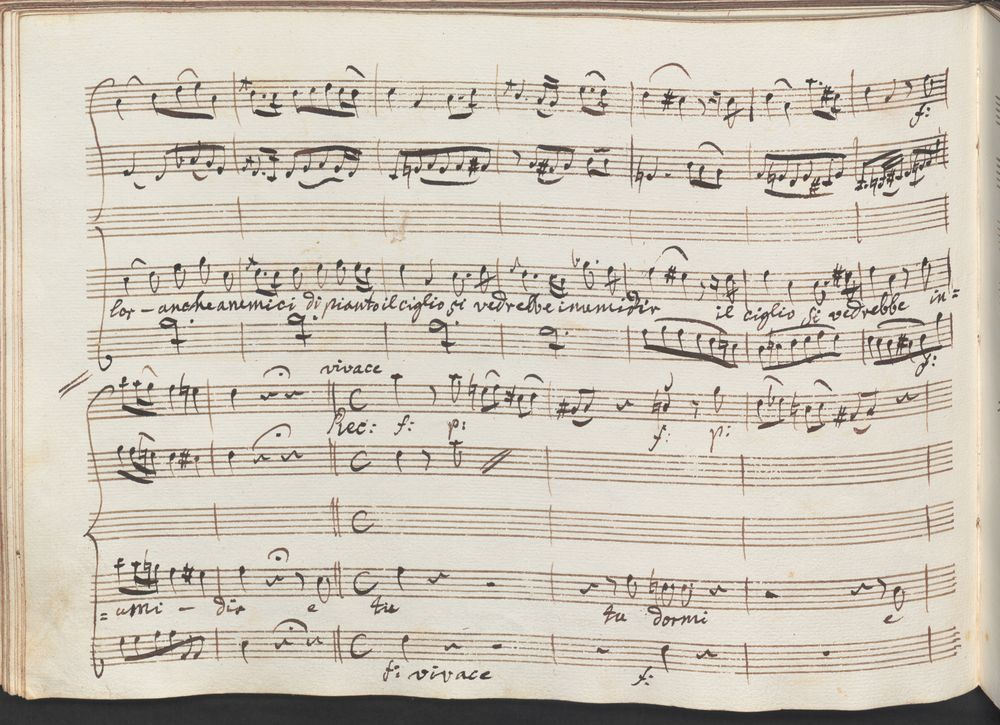 f:
lor - anche a nemici di pianto il ciglio si vedrebbe inumidir il ciglio si vedrebbe in=
f:
vivace
Rec: f: p: f: p:
=umi - dir e tu tu dormi e
f: vivace f: